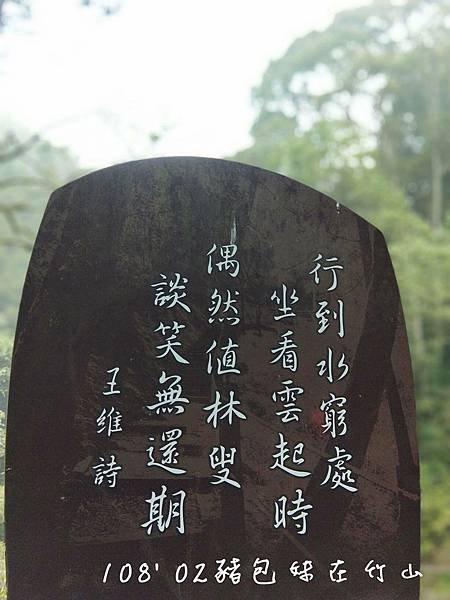 行到水窮處
坐看雲起時
偶然值林叟
談笑無還期
王維詩
108' 02豬包妹在竹山